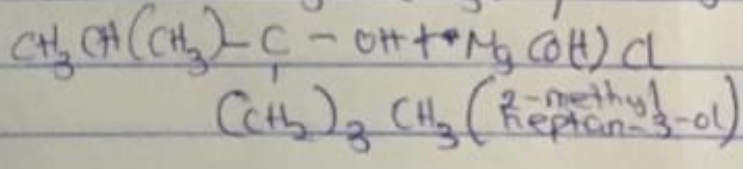 CH₃CH(CH₃)-C-OH+Mg(OH)Cl
(CH₂)₃CH₃(2-methyl
heptan-3-ol)